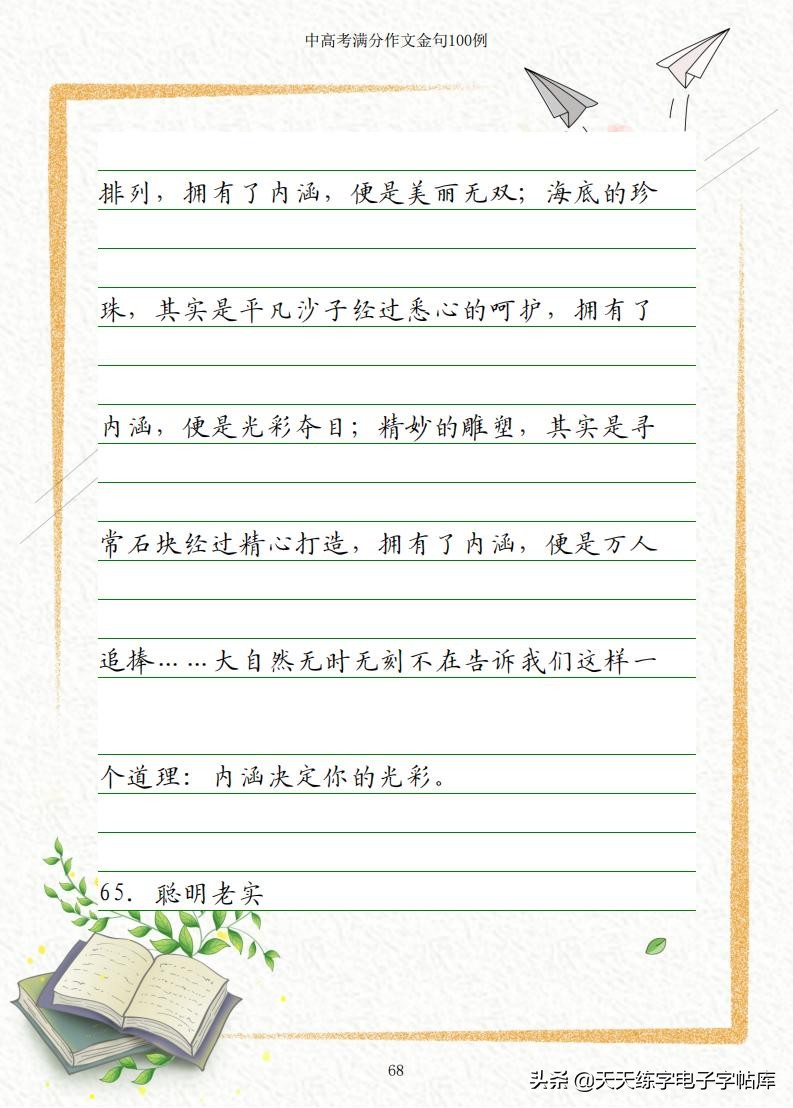 中高考满分作文金句100例
排列，拥有了内涵，便是美丽无双；海底的珍
珠，其实是平凡沙子经过悉心的呵护，拥有了
内涵，便是光彩夺目；精妙的雕塑，其实是寻
常石块经过精心打造，拥有了内涵，便是万人
追捧……大自然无时无刻不在告诉我们这样一
个道理：内涵决定你的光彩。
65. 聪明老实
68
头条 @天天练字电子字帖库